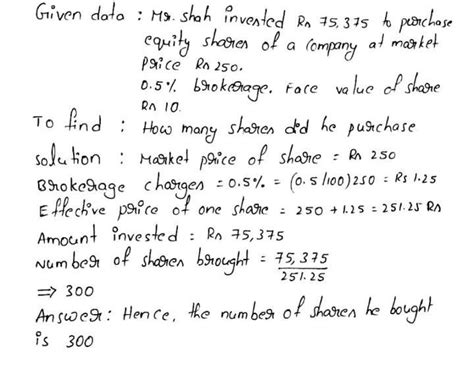 Given data : Mr. shah invested Rs 75,375 to purchase
equity shares of a company at market
price Rs 250.
0.5% brokerage. Face value of share
Rs 10.
To find : How many shares did he purchase
solution : Market price of share = Rs 250
Brokerage charges = 0.5% = (0.5/100)250 = Rs 1.25
Effective price of one share = 250 + 1.25 = 251.25 Rs
Amount invested : Rs 75,375
Number of shares brought = 75,375
251.25
⇒ 300
Answer : Hence, the number of shares he bought
is 300